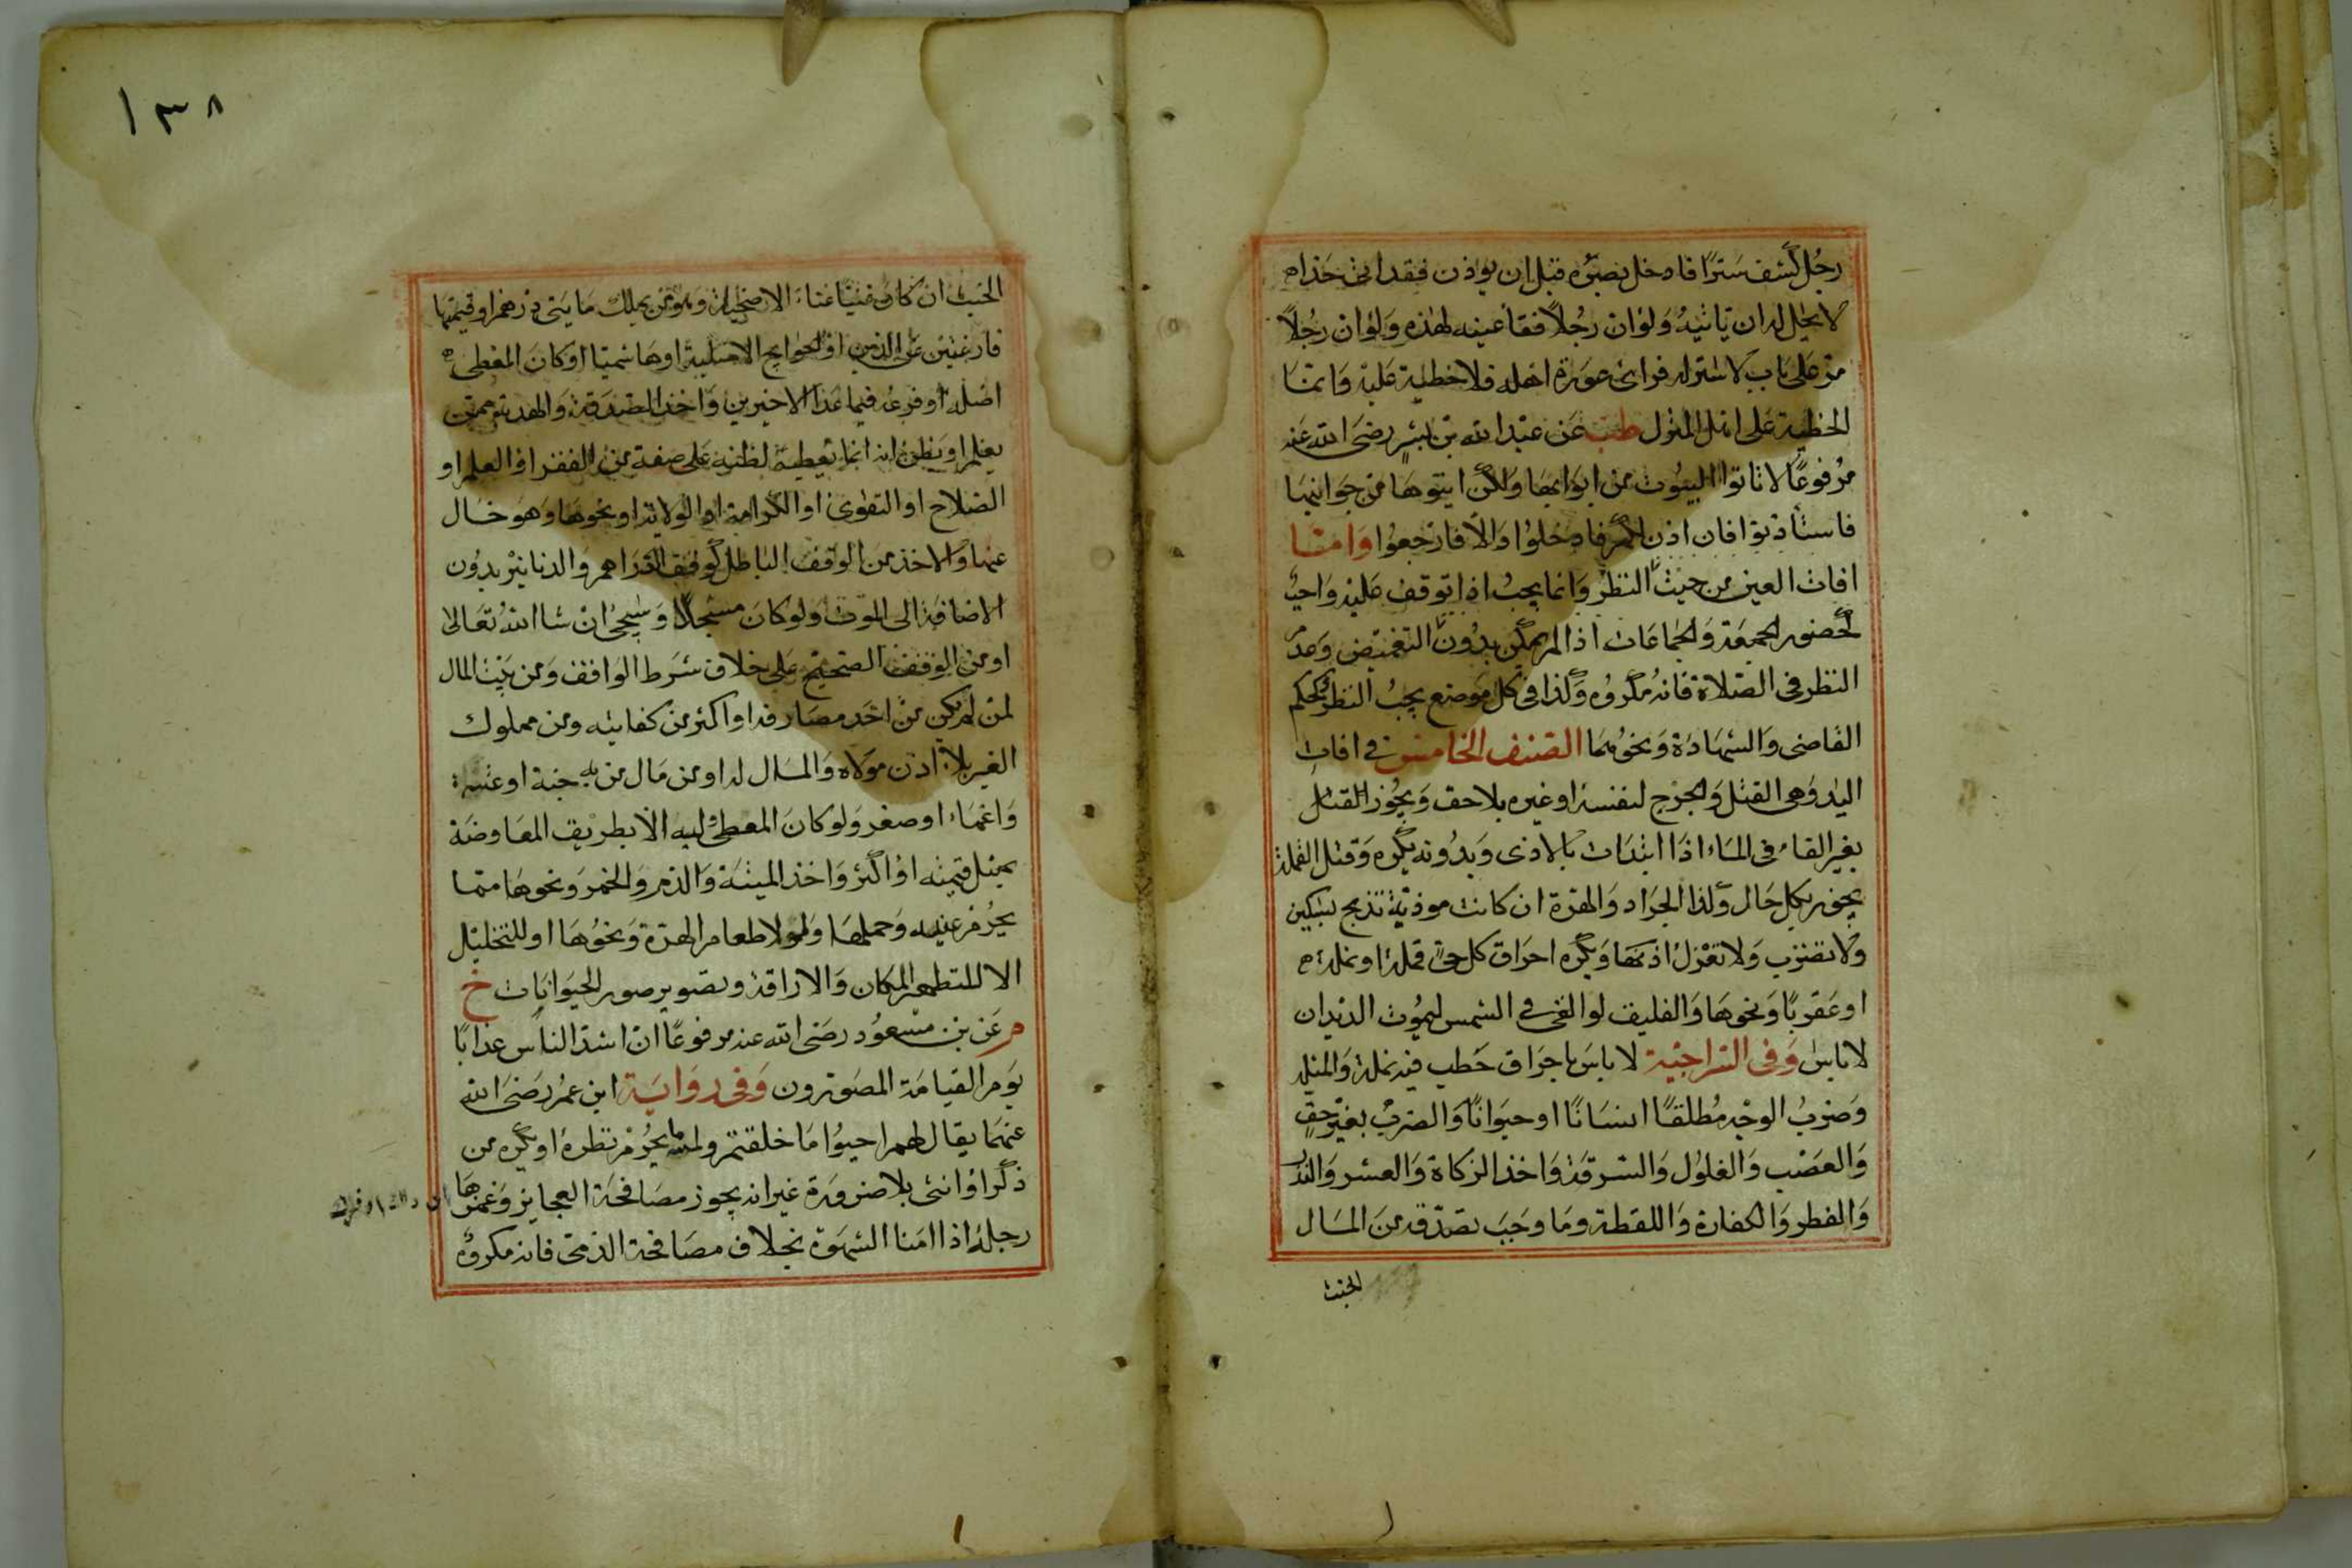 رجُل كشف سَترًا فادخل بصَره قبل ان يوذن فقد اتى حَدا
لا يحل له ان ياتيهُ وَلوْان رجُلاً فقأ عينه لهذه وَلوْان رجُلاً
مرّ على باب لا ستر له فراى عورة اهله فلا خطيئة عَليْه وَانما
الخطيئة على اهل المنزل طب عَن عبْد الله بن بُسْرٍ رضىَ الله عنه
مرْفوعًا لا تاتوا البيُوت من ابوابهَا وَلكن ايتوهَا من جوَانبها
فاستأذنوا فان اذن لكم فادخلوا وَالّا فارْجعوُا وَامّا
افات العين من حيثُ النظر وَانما يجبُ اذا توقف عَليْه وَاجبٌ
كحضور الجمعَة وَالجماعَات اذا لم يمكن بدُون التغميض وَعدم
النظر فى الصّلاة فانهُ مكروُه وَكذا فى كل مَوضع يجبُ النظر كحكم
القاضى وَالشهادَة وَنحوُهمَا الصّنف الخامس فى افات
اليد وهى القتل وَالجرْح لنفسهِ او غيره بلا حق وَيجُوز القتل
بغير القاء فى المَاء اذا ابتدَات بالاذى وَبدُونه يكره وَقتل القملة
يجوز بكل حَال وَكذا الجرَاد وَالهرّة ان كانت موذيَة تذبح بسكين
وَلا تضرب وَلا تعْرَك اذنهَا وَيكره احرَاق كل حىّ قملة او نملة
او عَقربًا وَنحوهَا وَالفليق لو القى فى الشمس ليمُوت الديدان
لا باس وَفى السّراجيّة لا باسَ باحرَاق حَطب فيه نملة وَالمثلة
وَضربُ الوجْه مُطلقًا انسَانًا او حيَوانًا وَالضربُ بغير حق
وَالغصْب وَالغلوُل وَالسّرقة وَاخذ الزكاة وَالعشر وَالنذر
وَالفطر وَالكفارة وَاللقطة وَمَا وجَبَ تصدّقه منَ المَال
الخبيث
١٣٨
الخبيث ان كان غنيّا غناء الاضحية وَهو من يملك مَا يتى درهم او قيمتها
فارغتين عن الدين او الحوايج الاصليّة او هَاشميّا او كان المعْطى
اصْله او فرعه فيما عَدا الاخيرين وَاخذ الصّدَقة وَالهديّة ممن
يعْلم او يَظنّ انه انما يُعطيه لظنه على صفة من الفقر او العلم او
الصّلاح او التقوى او الكرامة او الولاية او نحوها وَهو خَال
عنها وَالاخذ من الوَقف البَاطل كوقف الدّرَاهم وَالدنانير بدُون
الاضافة الى الموت وَلو كان مسَجّلًا وَسَيجئُ انْ شا اللهُ تعَالىٰ
او من الوقف الصّحيح عَلى خلاف شَرط الوَاقف وَمن بَيْت المال
لمن لم يكن من احَد مصَارفه او اكثر من كفايته وَمن مملوك
الغير بلا اذن مَولاه وَالمَال له او من مَال من به جنة او عته
وَاغماء او صغر وَلو كانَ المعطى وَليه الّا بطريق المعَاوضَة
بمثل قيمته او اكثر وَاخذ الميتة وَالدّم وَالخمر وَنحوهَا ممّا
يحرُم عينه وَحملهَا وَلو لاطعام الهرّة وَنحوُهَا او للتخليل
الا لتطهير المكان وَالاراقة وَتصوير صور الحيوانات خ
م عَن بن مسْعُود رضىَ الله عنه مرفوعًا انّ اشدّ الناس عذابًا
يَوم القيامَة المصَوّرون وَفى روَايَة ابن عمُر رَضىَ الله
عنهَما يقال لهم احيوُا مَا خلقتم وَلمْس ما يحرُم نظرهُ او يكره من
ذكر او انثى بلا ضرورَة غير انه يجوز مصَافحَة العجايز وَغمزهَا
رجلهُ اذا امَنا الشهوَة بخلاف مصَافحة الذمىّ فانه مكروُه